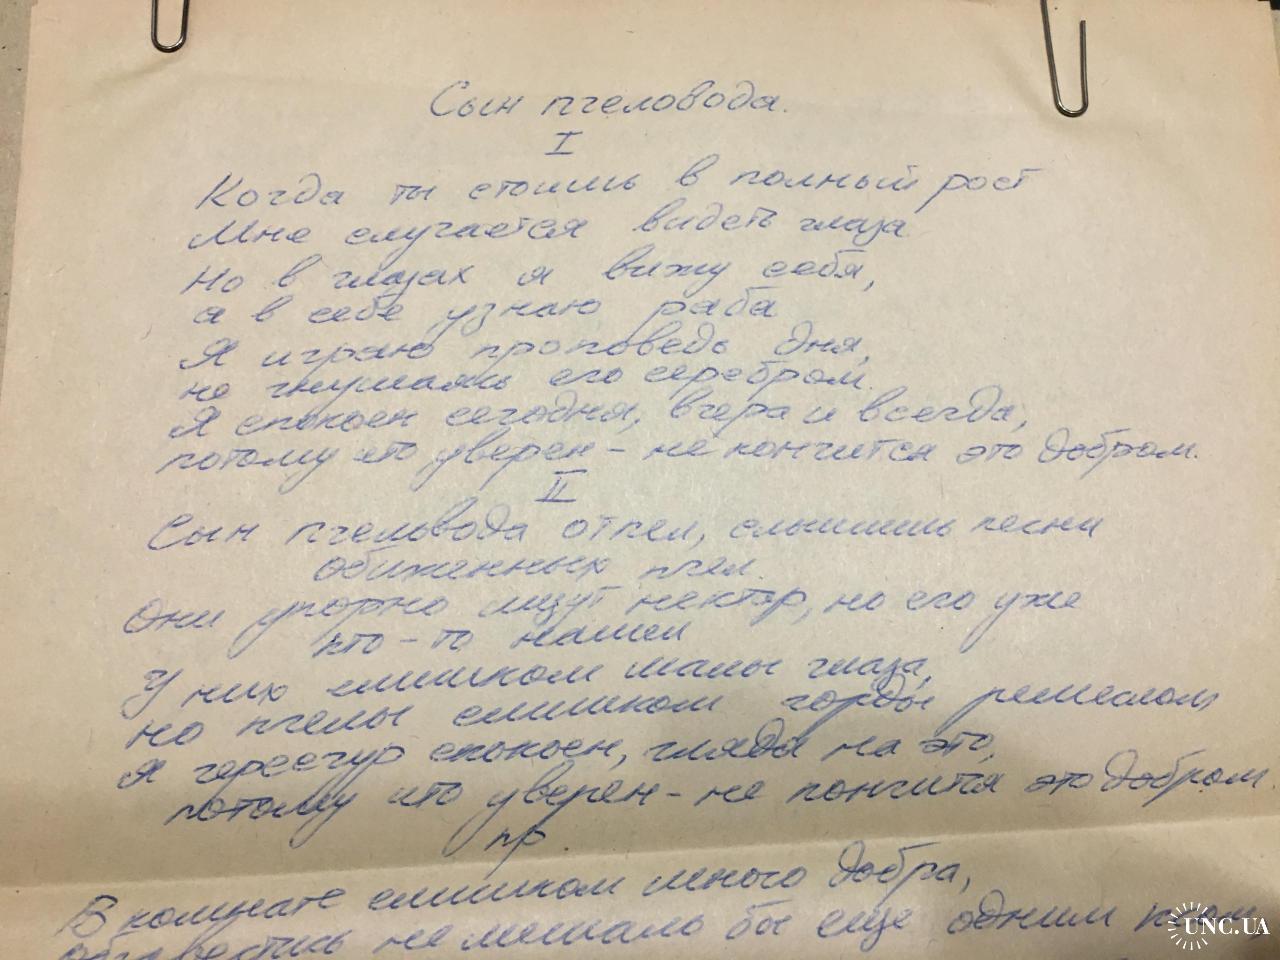 Сын пчеловода.
I
Когда ты стоишь в полный рост
Мне случается видеть глаза
Но в глазах я вижу себя,
а в себе узнаю раба
Я играю проповедь дня,
не гнушаясь его серебром.
Я спокоен сегодня, вчера и всегда,
потому что уверен - не кончится это добром.
II
Сын пчеловода отпел, слышишь песни
обиженных пчел.
Они упорно ищут нектар, но его уже
кто-то нашел
У них слишком малы глаза,
но пчелы слишком горды ремеслом
Я чересчур спокоен, глядя на это,
потому что уверен - не кончится это добром.
пр.
В комнате слишком много добра,
не мешало бы еще одним
UNC.UA